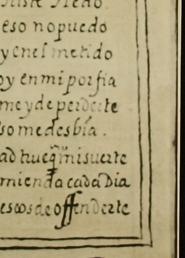 triste Medo.
eso no puedo
y en el metido
oy en mi porfia
me y de perderte
somedesbia.
ad hue q̃ mi suerte
mienda cada Dia
eseos de offenderte